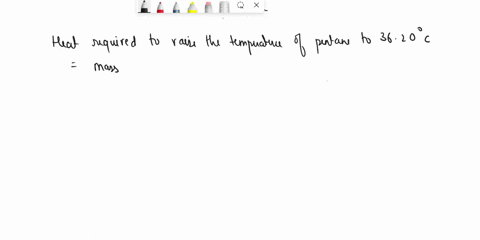 Heat required to raise the temperature of pentane to 36.20°C
= mass